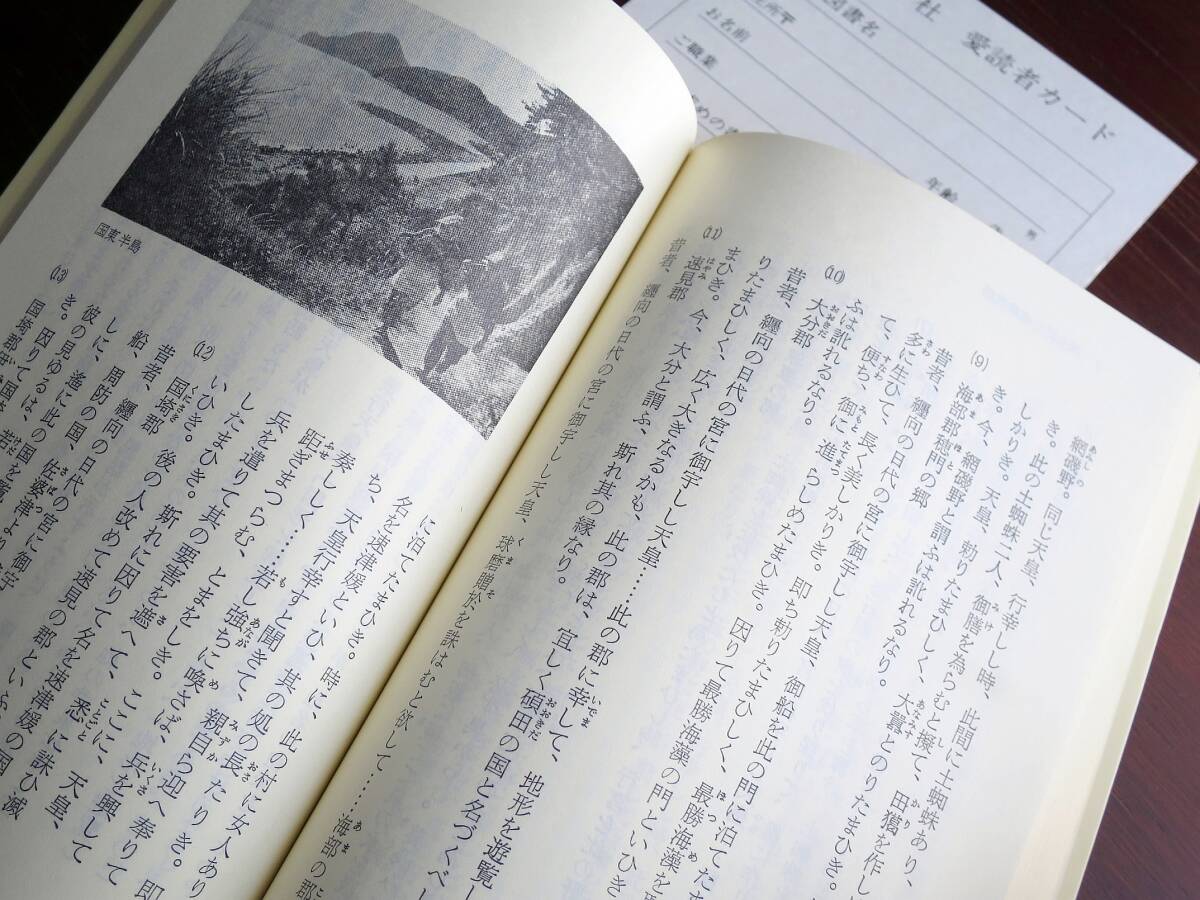 社　愛読者カード
図書名
お名前
ご職業
年齢
男
き。此の土蜘蛛二人、
網磯野。同じ天皇、行幸しし時、此間に土蜘蛛あり、
しかりき。天皇、勅りたまひしく、大囂とのりたまひき。
き。今、網磯野と謂ふは訛れるなり。
(9)
海部郡穂門の郷
昔者、纏向の日代の宮に御宇しし天皇、御船を此の門に泊てたま
多に生ひて、長く美しかりき。即ち勅りたまひしく、最勝海藻を
て、便ち、御に進らしめたまひき。因りて最勝海藻の門といひき
ふは訛れるなり。
(10)
大分郡
昔者、纏向の日代の宮に御宇しし天皇……此の郡に幸して、地形を遊覧し
りたまひしく、広く大きなるかも、此の郡は、宜しく碩田の国と名づくべし
まひき。今、大分と謂ふ、斯れ其の縁なり。
(11)
速見郡
昔者、纏向の日代の宮に御宇しし天皇、球磨贈於を誅はむと欲して……海部の郡
国東半島
に泊てたまひき。時に、此の村に女人あり
名を速津媛といひ、其の処の長たりき。即
ち、天皇行幸すと聞きて、親自ら迎へ奉りて
奏ししく……若し強ちに喚さば、兵を興して
距ぎまつらむ、とまをしき。ここに、天皇、
兵を遣りて其の要害を遮へて、悉に誅ひ滅
したまひき。斯れに因りて名を速津媛の国
いひき。後の人改めて速見の郡といふ
(12)
国埼郡
昔者、纏向の日代の宮に御宇
船、周防の国、佐婆津より
しに、遙に此の国を覧
彼の見ゆるは、若
き。因りて国
国埼郡
(13)